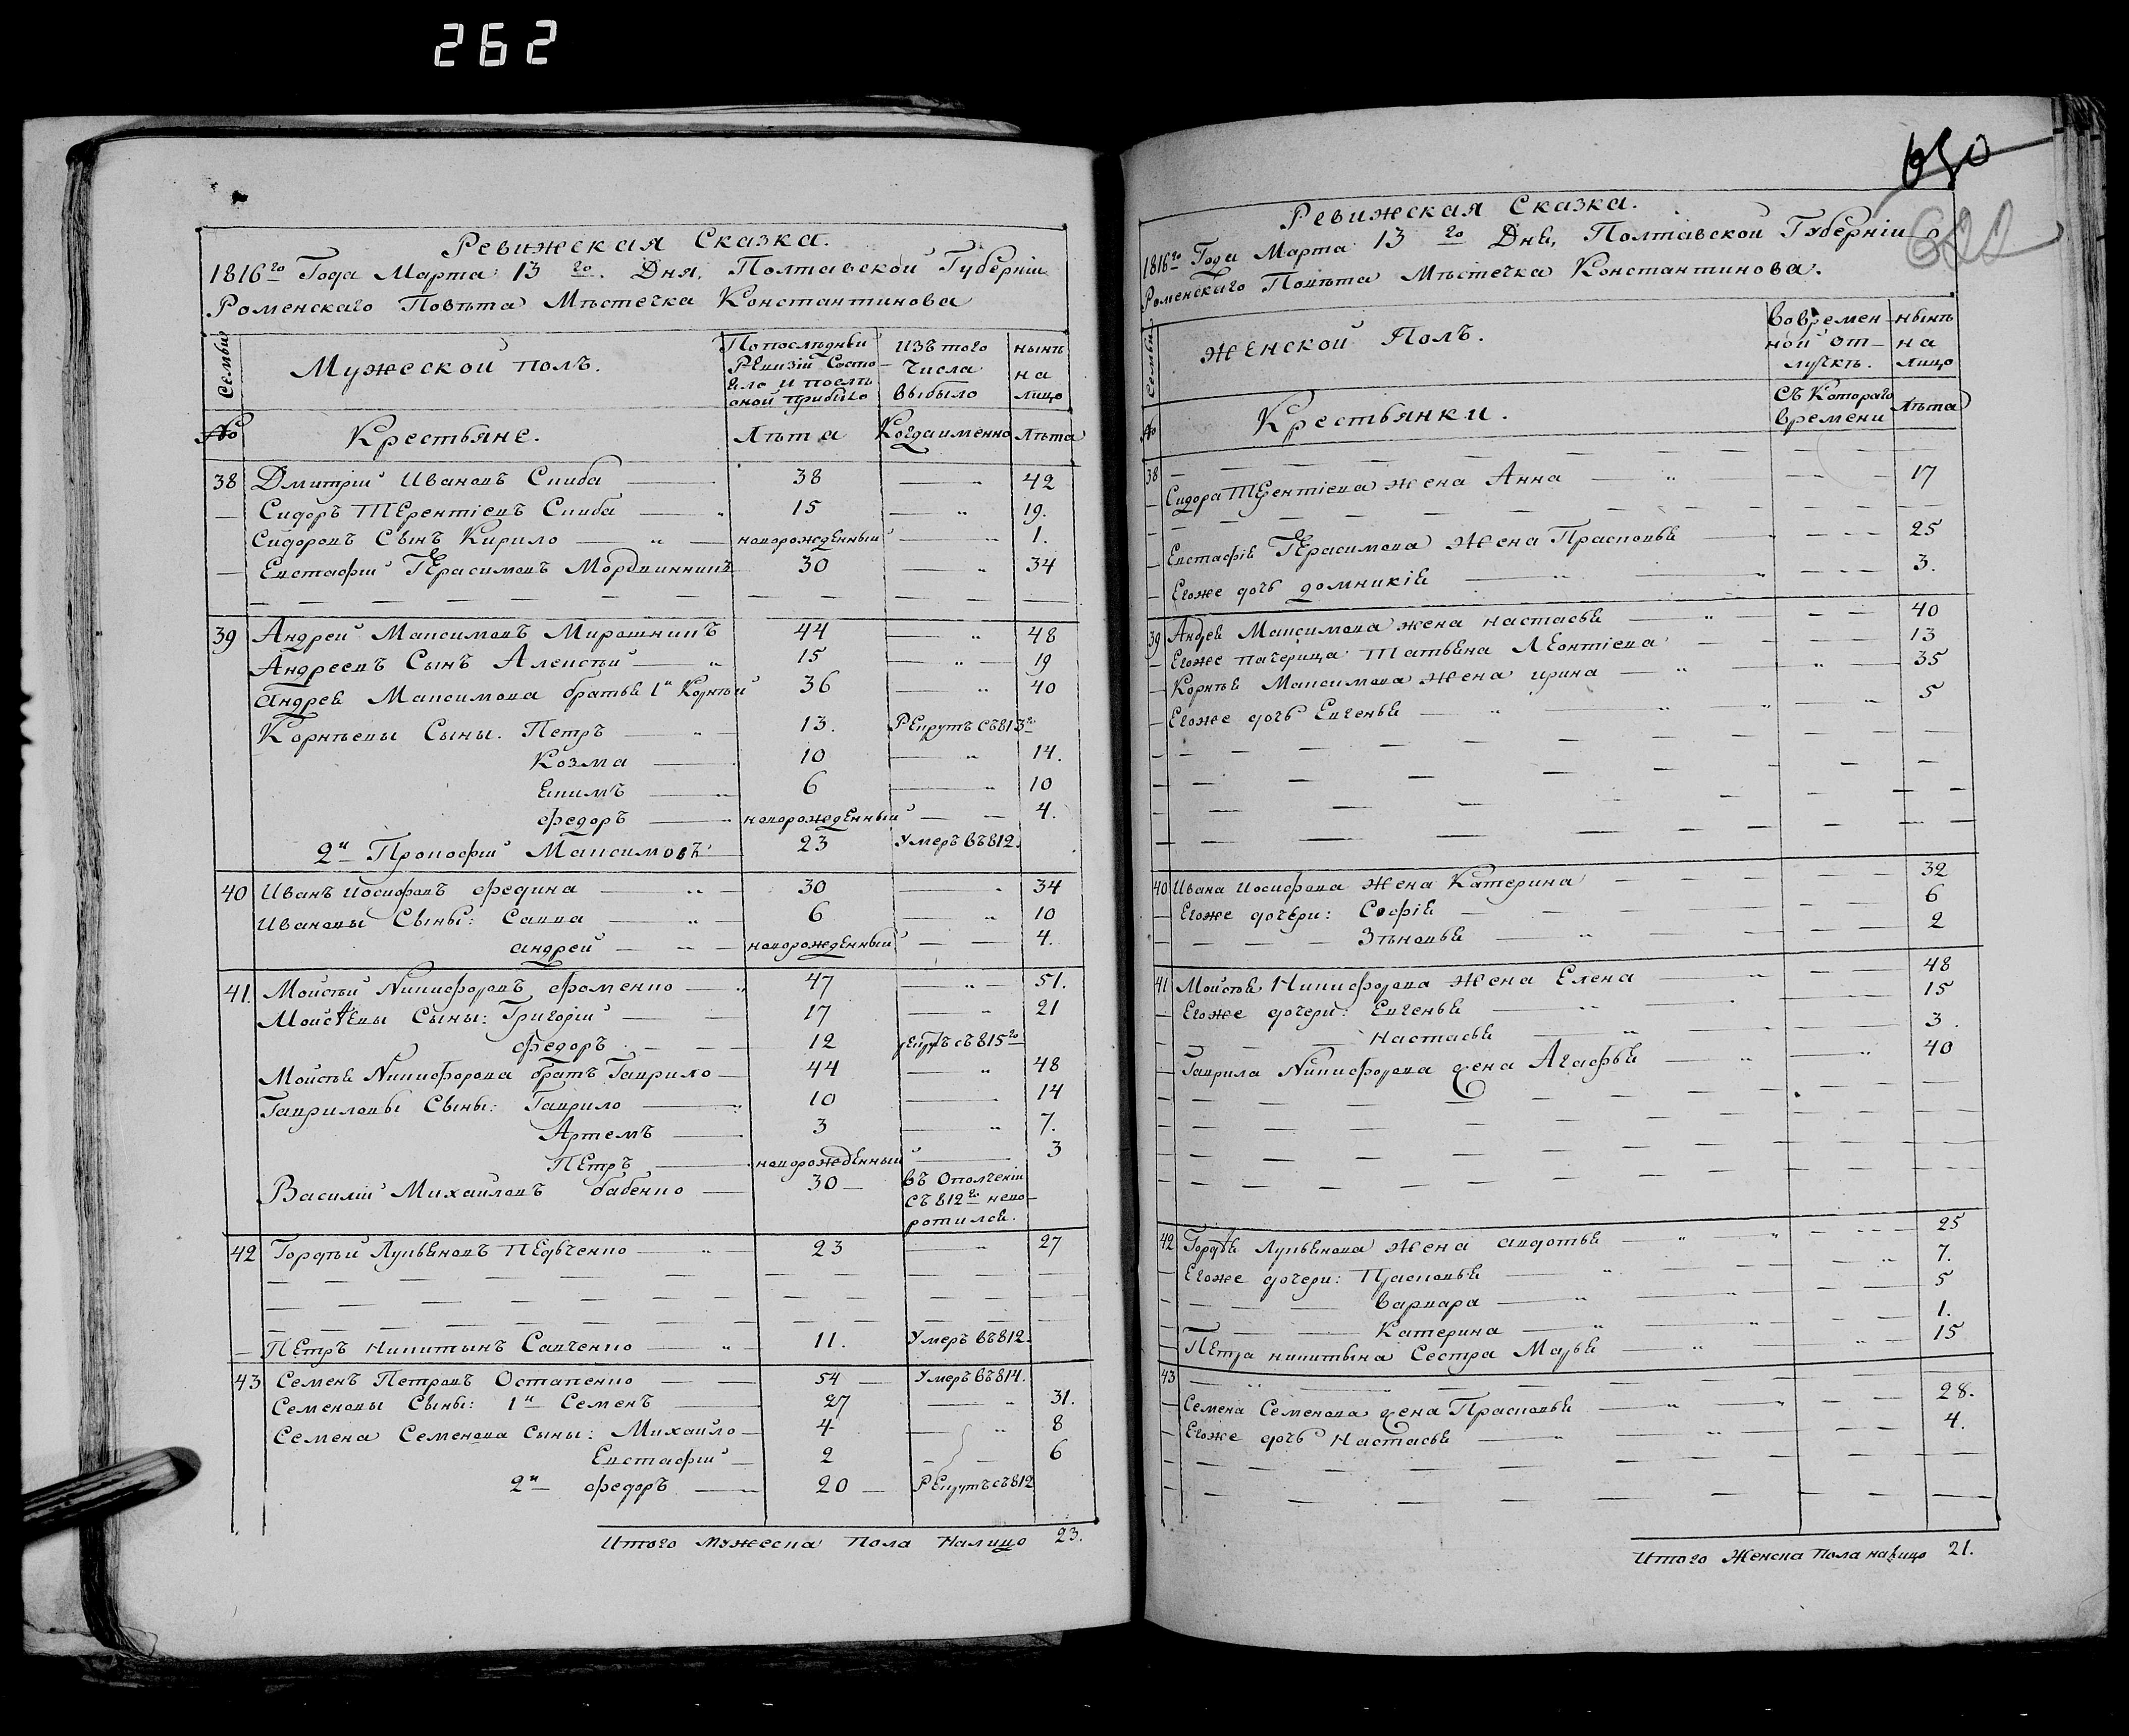 262
650
622
Ревижская Сказка.
1816го Года Марта 13го. Дня, Полтавской Губерніи
Роменскаго Повѣта Мѣстечка Константинова
Семьи
Мужеской полъ.
По послѣдней
Ревизіи Состо-
яло и послѣ
оной прибыло
Изъ того
Числа
выбыло
нынѣ
на
лицо
№
Крестьяне.
Лѣта
Когда именно
Лѣта
38 Дмитрій Ивановъ Скиба 38 42
Сидоръ Терентіевъ Скиба 15 19.
Сидоровъ Сынъ Кирило новорожденный 1.
Евстафій Герасимовъ Мордвинникъ 30 34
39 Андрей Максимовъ Мирошникъ 44 48
Андреевъ Сынъ Алексѣй 15 19
Андрея Максимова братья 1й Корнѣй 36 40
Корнѣевы Сыны. Петръ 13. Рекрутъ съ 813го
Козма 10 14.
Екимъ 6 10
Федоръ новорожденный 4.
2й Прокофій Максимовъ 23 Умеръ въ 812.
40 Иванъ Иосифовъ Федина 30 34
Ивановы Сыны: Савва 6 10
Андрей новорожденный 4.
41. Мойсѣй Никифоровъ Фоменко 47 51.
Мойсѣевы Сыны: Григорій 17 21
Федоръ 12 рекрутъ съ 815го
Мойсѣя Никифорова братъ Гаврило 44 48
Гавриловы Сыны: Гаврило 10 14
Артемъ 3 7.
Петръ новорожденный 3
Василій Михайловъ бабенко 30 въ Ополченіи
съ 812го непо-
ротился.
42 Гордѣй Лукьяновъ Педченко 23 27
Петръ Никитынъ Савченко 11. Умеръ въ 812.
43 Семенъ Петровъ Остапенко 54 Умеръ въ 814.
Семеновы Сыны: 1й Семенъ 27 31.
Семена Семенова сыны: Михайло 4 8
Евстафій 2 6
2й Федоръ 20 Рекрутъ съ 812
Итого мужеска пола налицо 23.
Ревижская Сказка.
1816го Года Марта 13го Дня, Полтавской Губерніи
Роменскаго Повѣта Мѣстечка Константинова.
Семьи
Женской Полъ.
Во времен-
ной от-
лучкѣ.
нынѣ
на
лицо
№
Крестьянки.
Съ Котораго
времени
Лѣта
38
Сидора Терентіева жена Анна 17
Евстафія Герасимова жена Прасковья 25
Егоже дочь Домникія 3.
39 Андрея Максимова жена Настасья 40
Егоже пачерица Татьяна Леонтіева 13
Корнѣя Максимова жена Ирина 35
Егоже дочь Евгенья 5
40 Ивана Иосифова жена Катерина 32
Егоже дочери: Софія 6
Зѣновья 2
41 Мойсѣя Никифорова жена Елена 48
Егоже дочери: Евгенья 15
Настасья 3.
Гаврила Никифорова жена Агафья 40
42 Гордѣя Лукьянова жена Авдотья 25
Егоже дочери: Прасковья 7.
Варвара 5
Катерина 1.
Петра Никитына Сестра Марья 15
43
Семена Семенова жена Прасковья 28.
Егоже дочь Настасья 4.
Итого Женска Пола налицо 21.